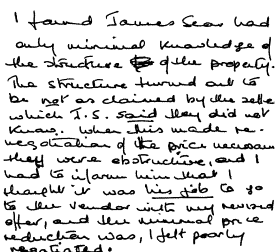 I found James Sear had
only minimal knowledge of
the structure of the property.
The structure turned out to
be not as claimed by the selle
which J.S. said they did not
know. When this made re-
negotiation of the price necessary
they were obstructive, and I
had to inform him that I
thought it was his job to go
to the vendor with my revised
offer, and the minimal price
reduction was, I felt poorly
negotiated.